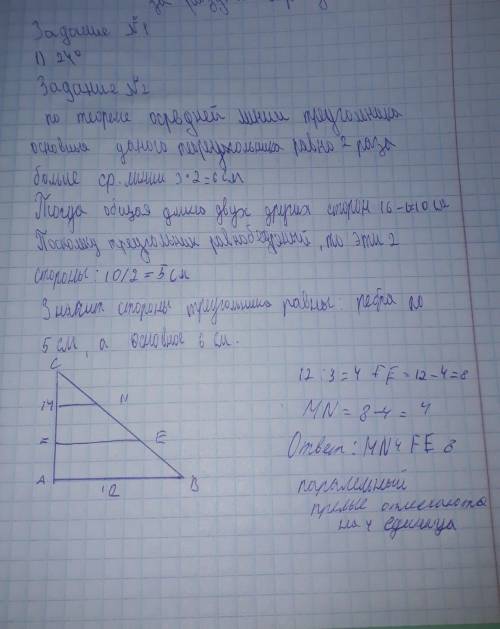 Задание №1
1) 24°
Задание №2
по теореме о средней линии треугольника
основания даного треугольника равно 2 раза
больше ср. линии 3·2=6см
Тогда общая длина двух других сторон 16-6=10см
Поскольку треугольник равнобедренный, то эти 2
стороны: 10/2=5см
Значит стороны треугольника равны: ребра по
5см, а основное 6 см.
C
M N
F E
A B
12
12:3=4 FE=12-4=8
MN=8-4=4
Ответ: MN 4 FE 8
прямые отличаются
на 4 единица